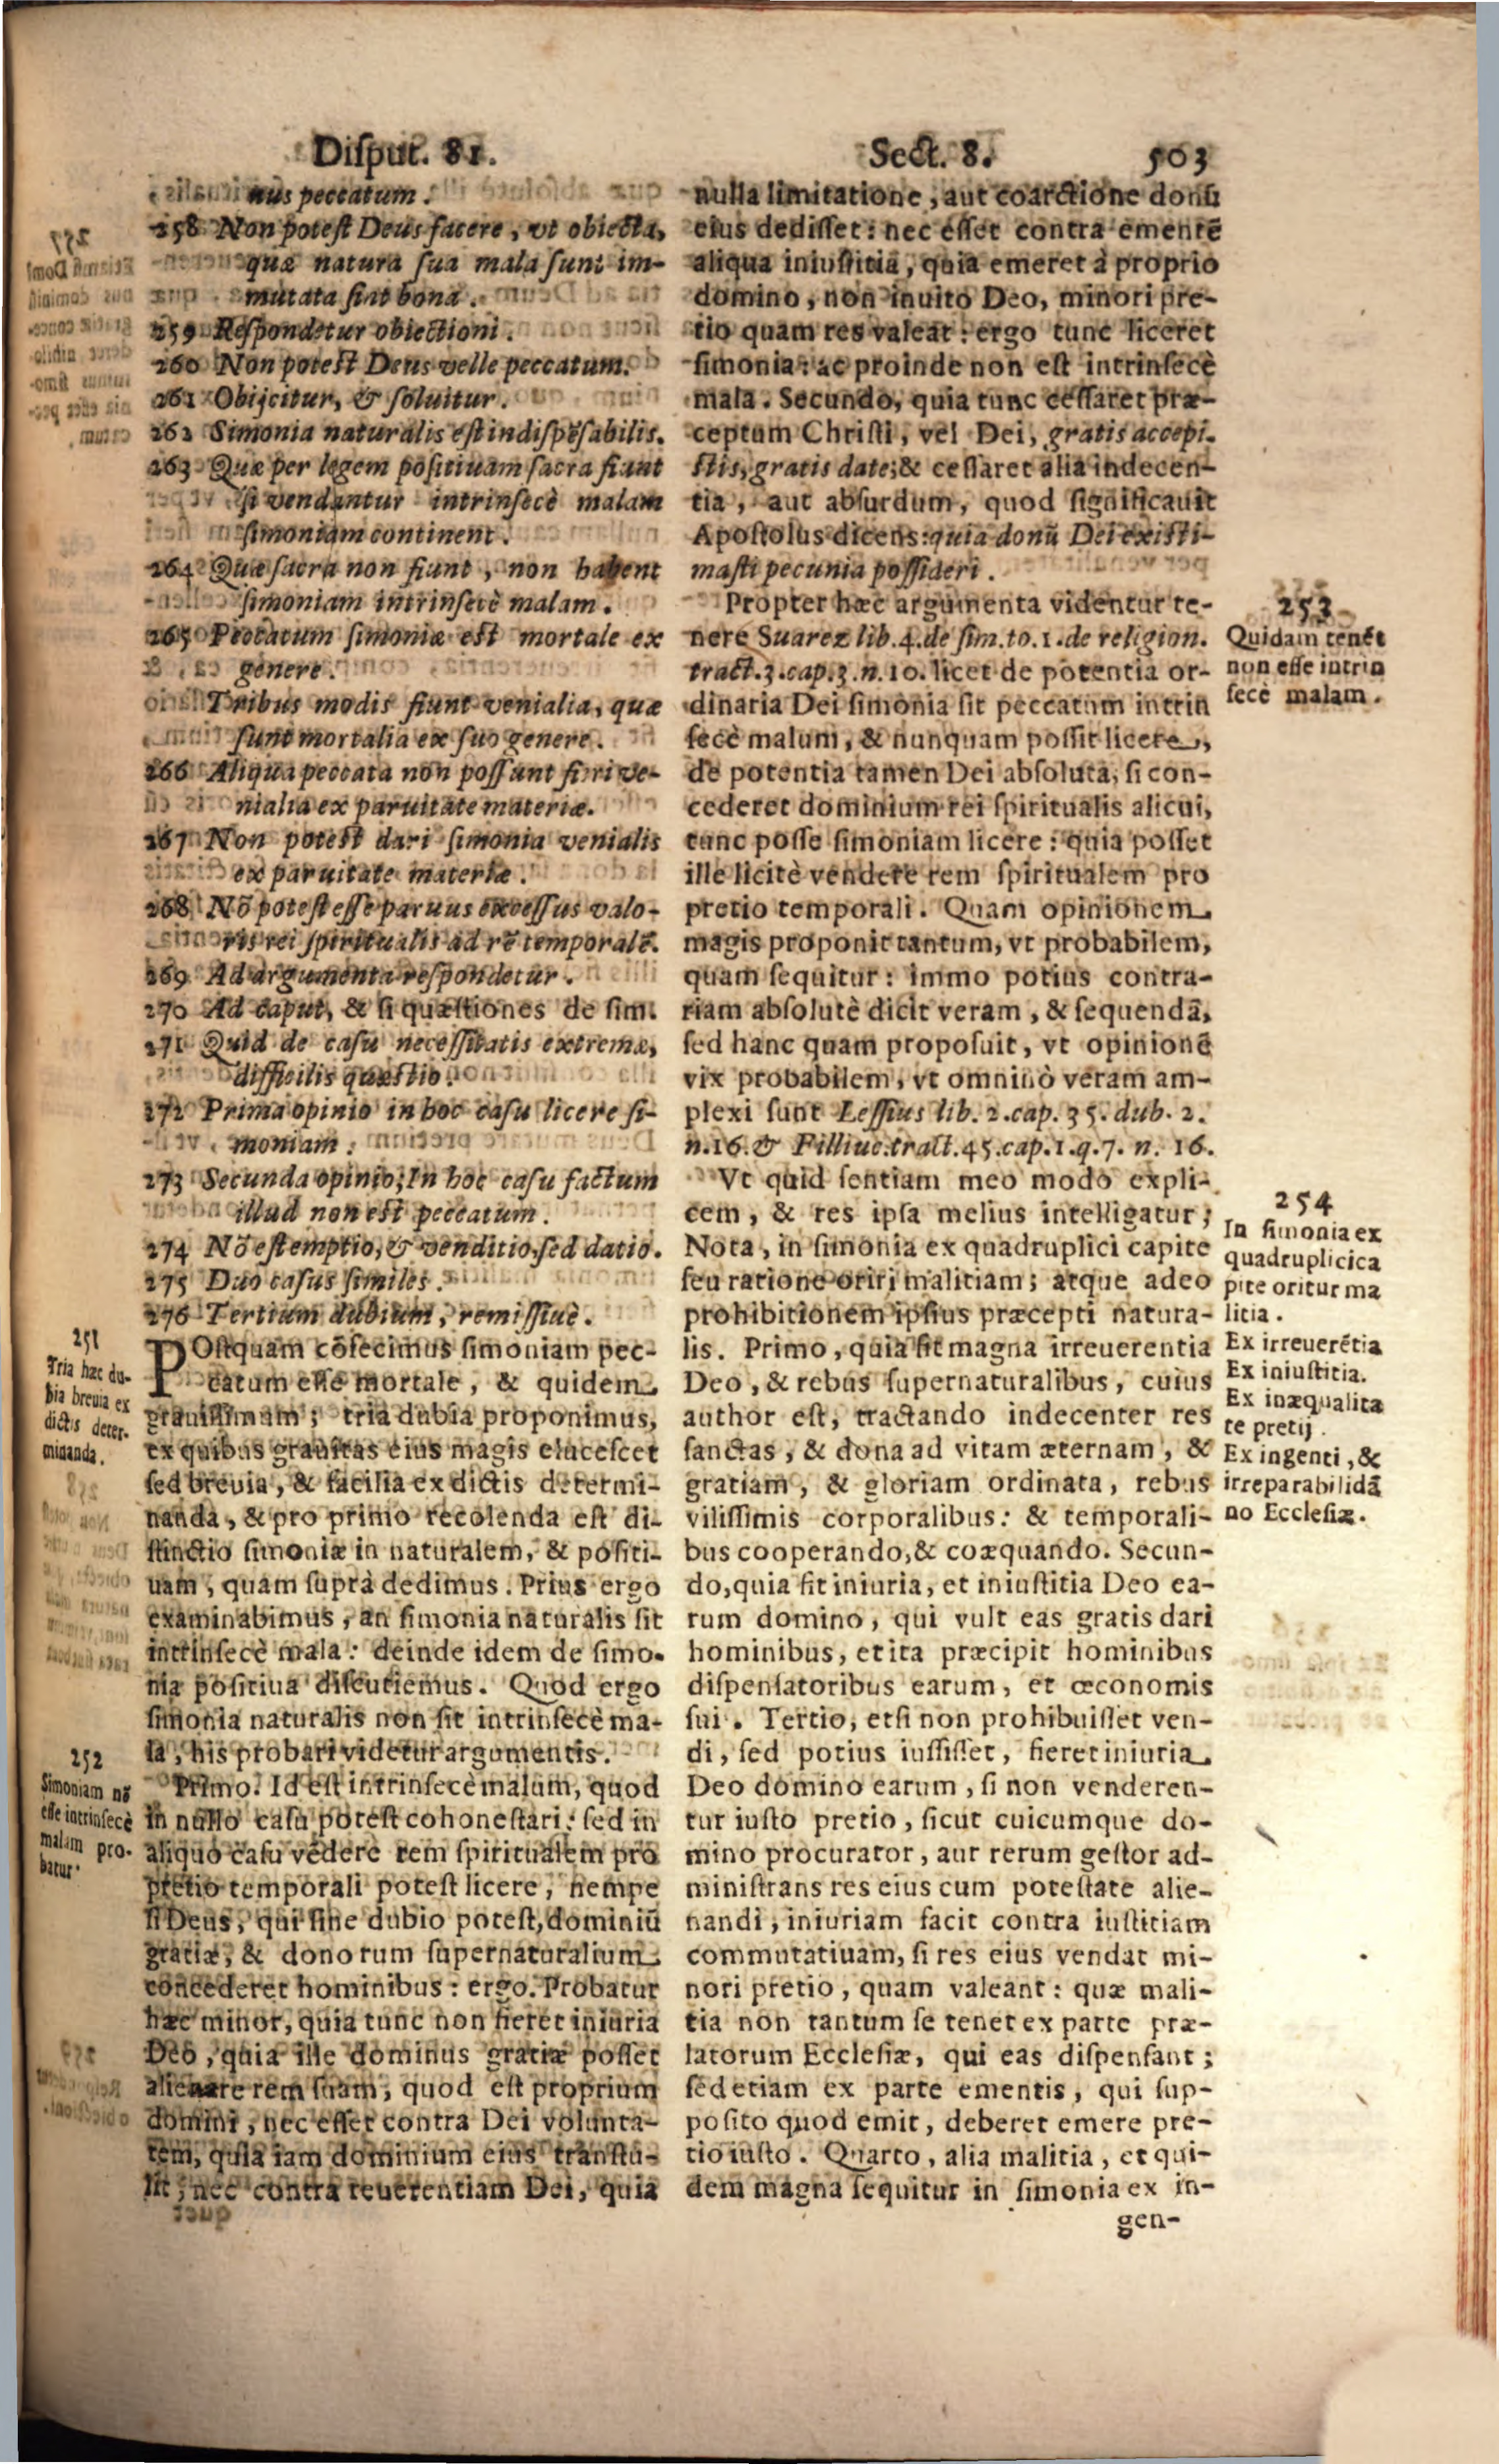 Disput. 81.
Sect. 8. 503
nus peccatum.
258 Non potest Deus facere, vt obiecta,
quæ natura sua mala sunt im-
mutata sint bona.
259 Respondetur obiectioni.
260 Non potest Deus velle peccatum.
261 Obijcitur, & soluitur.
262 Simonia naturalis est indispẽsabilis.
263 Quæ per legem positiuam sacra fiunt
si vendantur intrinsecè malam
simoniam continent.
264 Quæ sacra non fiunt, non habent
simoniam intrinsecè malam.
265 Peccatum simoniæ est mortale ex
genere.
Tribus modis fiunt venialia, quæ
sunt mortalia ex suo genere.
266 Aliqua peccata non possunt fieri ve-
nialia ex paruitate materiæ.
267 Non potest dari simonia venialis
ex paruitate materiæ.
268 Nõ potest esse paruus excessus valo-
ris rei spiritualis ad rẽ temporalẽ.
269 Ad argumenta respondetur.
270 Ad caput, & si quæstiones de sim.
271 Quid de casu necessitatis extremæ,
difficilis quæstio.
272 Prima opinio in hoc casu licere si-
moniam.
273 Secunda opinio; In hoc casu factum
illud non est peccatum.
274 Nõ est emptio, & venditio, sed datio.
275 Duo casus similes.
276 Tertium dubium, remissiuè.
251
Tria hæc du-
bia breuia ex
dictis deter-
minanda.
POstquam cõfecimus simoniam pec-
catum esse mortale, & quidem
grauissimam; tria dubia proponimus,
ex quibus grauitas eius magis elucescet
sed breuia, & facilia ex dictis determi-
nanda, & pro primo recolenda est di-
stinctio simoniæ in naturalem, & positi-
uam, quam suprà dedimus. Prius ergo
examinabimus, an simonia naturalis sit
intrinsecè mala: deinde idem de simo-
nia positiua discutiemus. Quod ergo
simonia naturalis non sit intrinsecè ma-
la, his probari videtur argumentis.
252
Simoniam nõ
esse intrinsecè
malam pro-
batur.
Primo. Id est intrinsecè malum, quod
in nullo casu potest cohonestari: sed in
aliquo casu vẽdere rem spiritualem pro
pretio temporali potest licere, nempe
si Deus, qui sine dubio potest, dominiũ
gratiæ, & donorum supernaturalium
concederet hominibus: ergo. Probatur
hæc minor, quia tunc non fieret iniuria
Deo, quia ille dominus gratiæ posset
alienare rem suam, quod est proprium
domini, nec esset contra Dei volunta-
tem, quia iam dominium eius transtu-
lit; nec contra reuerentiam Dei, quia
nulla limitatione, aut coarctione donũ
eius dedisset: nec esset contra ementẽ
aliqua iniustitia, quia emeret à proprio
domino, non inuito Deo, minori pre-
tio quam res valeat: ergo tunc liceret
simonia: ac proinde non est intrinsecè
mala. Secundo, quia tunc cessaret præ-
ceptum Christi, vel Dei, gratis accepi-
stis, gratis date; & cessaret alia indecen-
tia, aut absurdum, quod significauit
Apostolus dicens: quia donũ Dei existi-
masti pecunia possideri.
Propter hæc argumenta videntur te-
nere Suarez lib. 4. de sim. to. 1. de religion.
tract. 3. cap. 3. n. 10. licet de potentia or-
dinaria Dei simonia sit peccatum intrin
secè malum, & nunquam possit licere,
de potentia tamen Dei absoluta, si con-
cederet dominium rei spiritualis alicui,
tunc posse simoniam licere: quia posset
ille licitè vendere rem spiritualem pro
pretio temporali. Quam opinionem
magis proponit tantum, vt probabilem,
quam sequitur: immo potius contra-
riam absolutè dicit veram, & sequendã,
sed hanc quam proposuit, vt opinionẽ
vix probabilem, vt omninò veram am-
plexi sunt Lessius lib. 2. cap. 35. dub. 2.
n. 16. & Filliuc. tract. 45. cap. 1. q. 7. n. 16.
253
Quidam tenẽt
non esse intrin
secè malam.
Vt quid sentiam meo modo expli-
cem, & res ipsa melius intelligatur;
Nota, in simonia ex quadruplici capite
seu ratione oriri malitiam; atque adeo
prohibitionem ipsius præcepti natura-
lis. Primo, quia fit magna irreuerentia
Deo, & rebus supernaturalibus, cuius
author est, tractando indecenter res
sanctas, & dona ad vitam æternam, &
gratiam, & gloriam ordinata, rebus
vilissimis corporalibus: & temporali-
bus cooperando, & coæquando. Secun-
do, quia fit iniuria, et iniustitia Deo ea-
rum domino, qui vult eas gratis dari
hominibus, et ita præcipit hominibus
dispensatoribus earum, et œconomis
sui. Tertio, etsi non prohibuisset ven-
di, sed potius iussisset, fieret iniuria
Deo domino earum, si non venderen-
tur iusto pretio, sicut cuicumque do-
mino procurator, aut rerum gestor ad-
ministrans res eius cum potestate alie-
nandi, iniuriam facit contra iustitiam
commutatiuam, si res eius vendat mi-
nori pretio, quam valeant: quæ mali-
tia non tantum se tenet ex parte præ-
latorum Ecclesiæ, qui eas dispensant;
sed etiam ex parte ementis, qui sup-
posito quod emit, deberet emere pre-
tio iusto. Quarto, alia malitia, et qui-
dem magna sequitur in simonia ex in-
gen-
254
In simonia ex
quadruplici ca
pite oritur ma
litia.
Ex irreuerẽtia
Ex iniustitia.
Ex inæqualita
te pretij.
Ex ingenti, &
irreparabili dã
no Ecclesiæ.